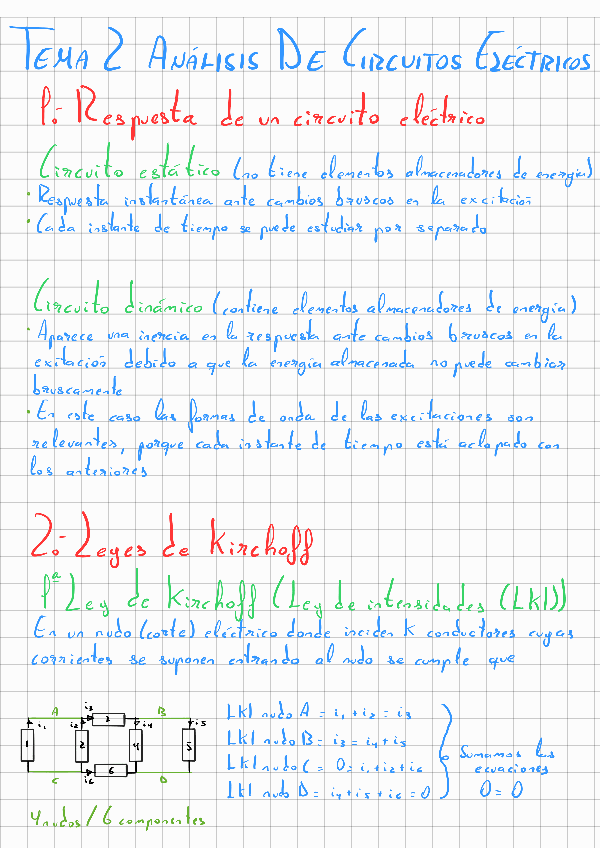 TEMA 2 ANÁLISIS DE CIRCUITOS ELÉCTRICOS
1: Respuesta de un circuito eléctrico
Circuito estático (no tiene elementos almacenadores de energía)
· Respuesta instantánea ante cambios bruscos en la excitación
· Cada instante de tiempo se puede estudiar por separado
Circuito dinámico (contiene elementos almacenadores de energía)
· Aparece una inercia en la respuesta ante cambios bruscos en la
exitación debido a que la energía almacenada no puede cambiar
bruscamente
· En este caso las formas de onda de las excitaciones son
relevantes, porque cada instante de tiempo está aclopado con
los anteriores
2: Leyes de Kirchoff
1ª Ley de Kirchoff (Ley de intensidades (LKI))
En un nudo (corte) eléctrico donde inciden K conductores cuyas
corrientes se suponen entrando al nudo se cumple que
A i3 3 B
i1 i2 i4 i5
1 2 4 5
C i6 6 D
4 nudos / 6 componentes
LKI nudo A = i1 + i2 = i3
LKI nudo B = i3 = i4 + i5
LKI nudo C = 0 = i1 + i2 + i6
LKI nudo D = i4 + i5 + i6 = 0
Sumamos las
ecuaciones
0 = 0